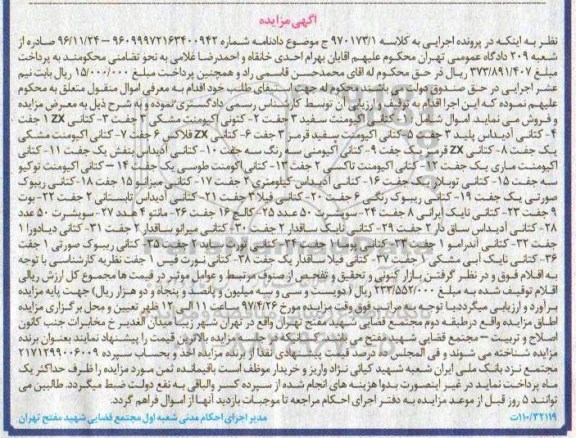 آگهی مزایده
نظر به اینکه در پرونده اجرایی به کلاسه ۹۷۰۱۷۳/۱ ج موضوع دادنامه شماره ۹۶۰۹۹۹۷۲۱۶۳۴۰۰۹۴۲ – ۹۶/۱۱/۲۴ صادره از
شعبه ۲۰۹ دادگاه عمومی تهران محکوم علیهم آقایان بهرام احدی خانقاه و احمدرضا غلامی به نحو تضامنی محکومند به پرداخت
مبلغ ۳۷۳/۸۹۱/۴۰۷ ریال در حق محکوم له آقای محمدحسن قاسمی راد و همچنین پرداخت مبلغ ۱۵/۰۰۰/۰۰۰ ریال بابت نیم
عشر اجرایی در حق صندوق دولت می باشند محکوم له جهت استیفای طلب خود اقدام به معرفی اموال منقول متعلق به محکوم
علیهم نموده که این اجرا اقدام به توقیف و ارزیابی آن توسط کارشناس رسمی دادگستری نموده و به شرح ذیل به معرض مزایده
و فروش می نماید. اموال شامل ۱- کتانی اکیومنت سفید ۳ جفت ۲- کتونی اکیومنت مشکی ۲ جفت ۳- کتانی ZX ۱ جفت
۴- کتانی آدیداس پلید ۳ جفت ۵- کتانی اکیومنت سفید قرمز ۳ جفت ۶- کتانی ZX فلامک ۶ جفت ۷- کتانی اکیومنت مشکی
یک جفت ۸- کتانی ZX قرمز یک جفت ۹- کتانی اکیومنی سه رنگ سه جفت ۱۰- کتانی آدیداس بنفش یک جفت ۱۱- کتانی
اکیومنت ماری یک جفت ۱۲- کتانی اکیومنت تاکسی ۲ جفت ۱۳- کتانی اکومنت طوسی یک جفت ۱۴- کتانی اکیومنت توکیو
سه جفت ۱۵- کتانی توبلار یک جفت ۱۶- کتانی آدیداس کیلومتری ۳ جفت ۱۷- کتانی میزانو ۱۵ جفت ۱۸- کتانی ریبوک
صورتی یک جفت ۱۹- کتانی ریبوک رنگی ۶ جفت ۲۰- کتانی فیلا ۳ جفت ۲۱- کتانی آدیداس تابستانی ۲ جفت ۲۲- بوت
۹ جفت ۲۳- کتانی نایک ایرانی ۸ جفت ۲۴- سویشرت ۵۰ عدد ۲۵- کالج ۱۶ جفت ۲۶- مانتو ۴ عدد ۲۷- سویشرت ۵۰ عدد
۲۸- آدیداس ساق دار ۲ جفت ۲۹- کتانی نایک ساقدار ۲ جفت ۳۰- کتانی میرانو ساقدار ۲ جفت ۳۱- کتانی دیادورا ۱
جفت ۳۲- کتانی آندرامو ۱ جفت ۳۳- کتانی فانتوف ۱ جفت ۳۴- کتانی توری ساید ۲ جفت ۳۵- کتانی ریبوک صورتی ۱ جفت
۳۶- کتانی نایک آبی مشکی ۱ جفت ۳۷- کتانی فیلا ساقدار یک جفت ۳۸- کتانی نورث فیس ۱ جفت نظریه کارشناسی با توجه
به اقلام فوق و در نظر گرفتن بازار کنونی و تحقیق و تفحص از صنوف مرتبط و عوامل موثر در قیمت ها مجموع کل ارزش ریالی
اقلام توقیف شده به مبلغ ۲۳۳/۵۵۲/۰۰۰ ریال (دویست و سی و سه میلیون و پانصد و پنجاه و دو هزار ریال) جهت پایه مزایده
برآورد و ارزیابی میگردد. با توجه به مراتب فوق وقت مزایده مورخ ۹۷/۴/۲۶ ساعت ۱۱ الی ۱۲ ظهر تعیین و محل برگزاری مزایده
اطاق مزایده واقع در طبقه دوم مجتمع قضایی شهید مفتح تهران واقع در تهران شهر زیبا میدان الغدیر خ مخابرات جنب کانون
اصلاح و تربیت – مجتمع قضایی شهید مفتح می باشد. کسی که در جلسه مزایده بالاترین قیمت را پیشنهاد نماید بعنوان برنده
مزایده شناخته می شوند و فی المجلس ده درصد قیمت پیشنهادی نقدا از برنده مزایده اخذ و بحساب سپرده ۲۱۷۱۲۹۹۰۰۶۰۰۹
مجتمع نزد بانک ملی ایران شعبه شهید کیانی نژاد واریز و خریدار موظف است باقیمانده ثمن مورد مزایده را ظرف حداکثر یک
ماه پرداخت نماید در غیر اینصورت بدوا هزینه های انجام شده از سپرده کسر والباقی به نفع دولت ضبط میگردد. طالبین می
توانند ۵ روز قبل از موعد مزایده به دفتر اجرای احکام مراجعه تا موجبات بازدید آنها از اموال فراهم گردد.
۱۱۰/۳۲۱۱۹ت مدیر اجرای احکام مدنی شعبه اول مجتمع قضایی شهید مفتح تهران